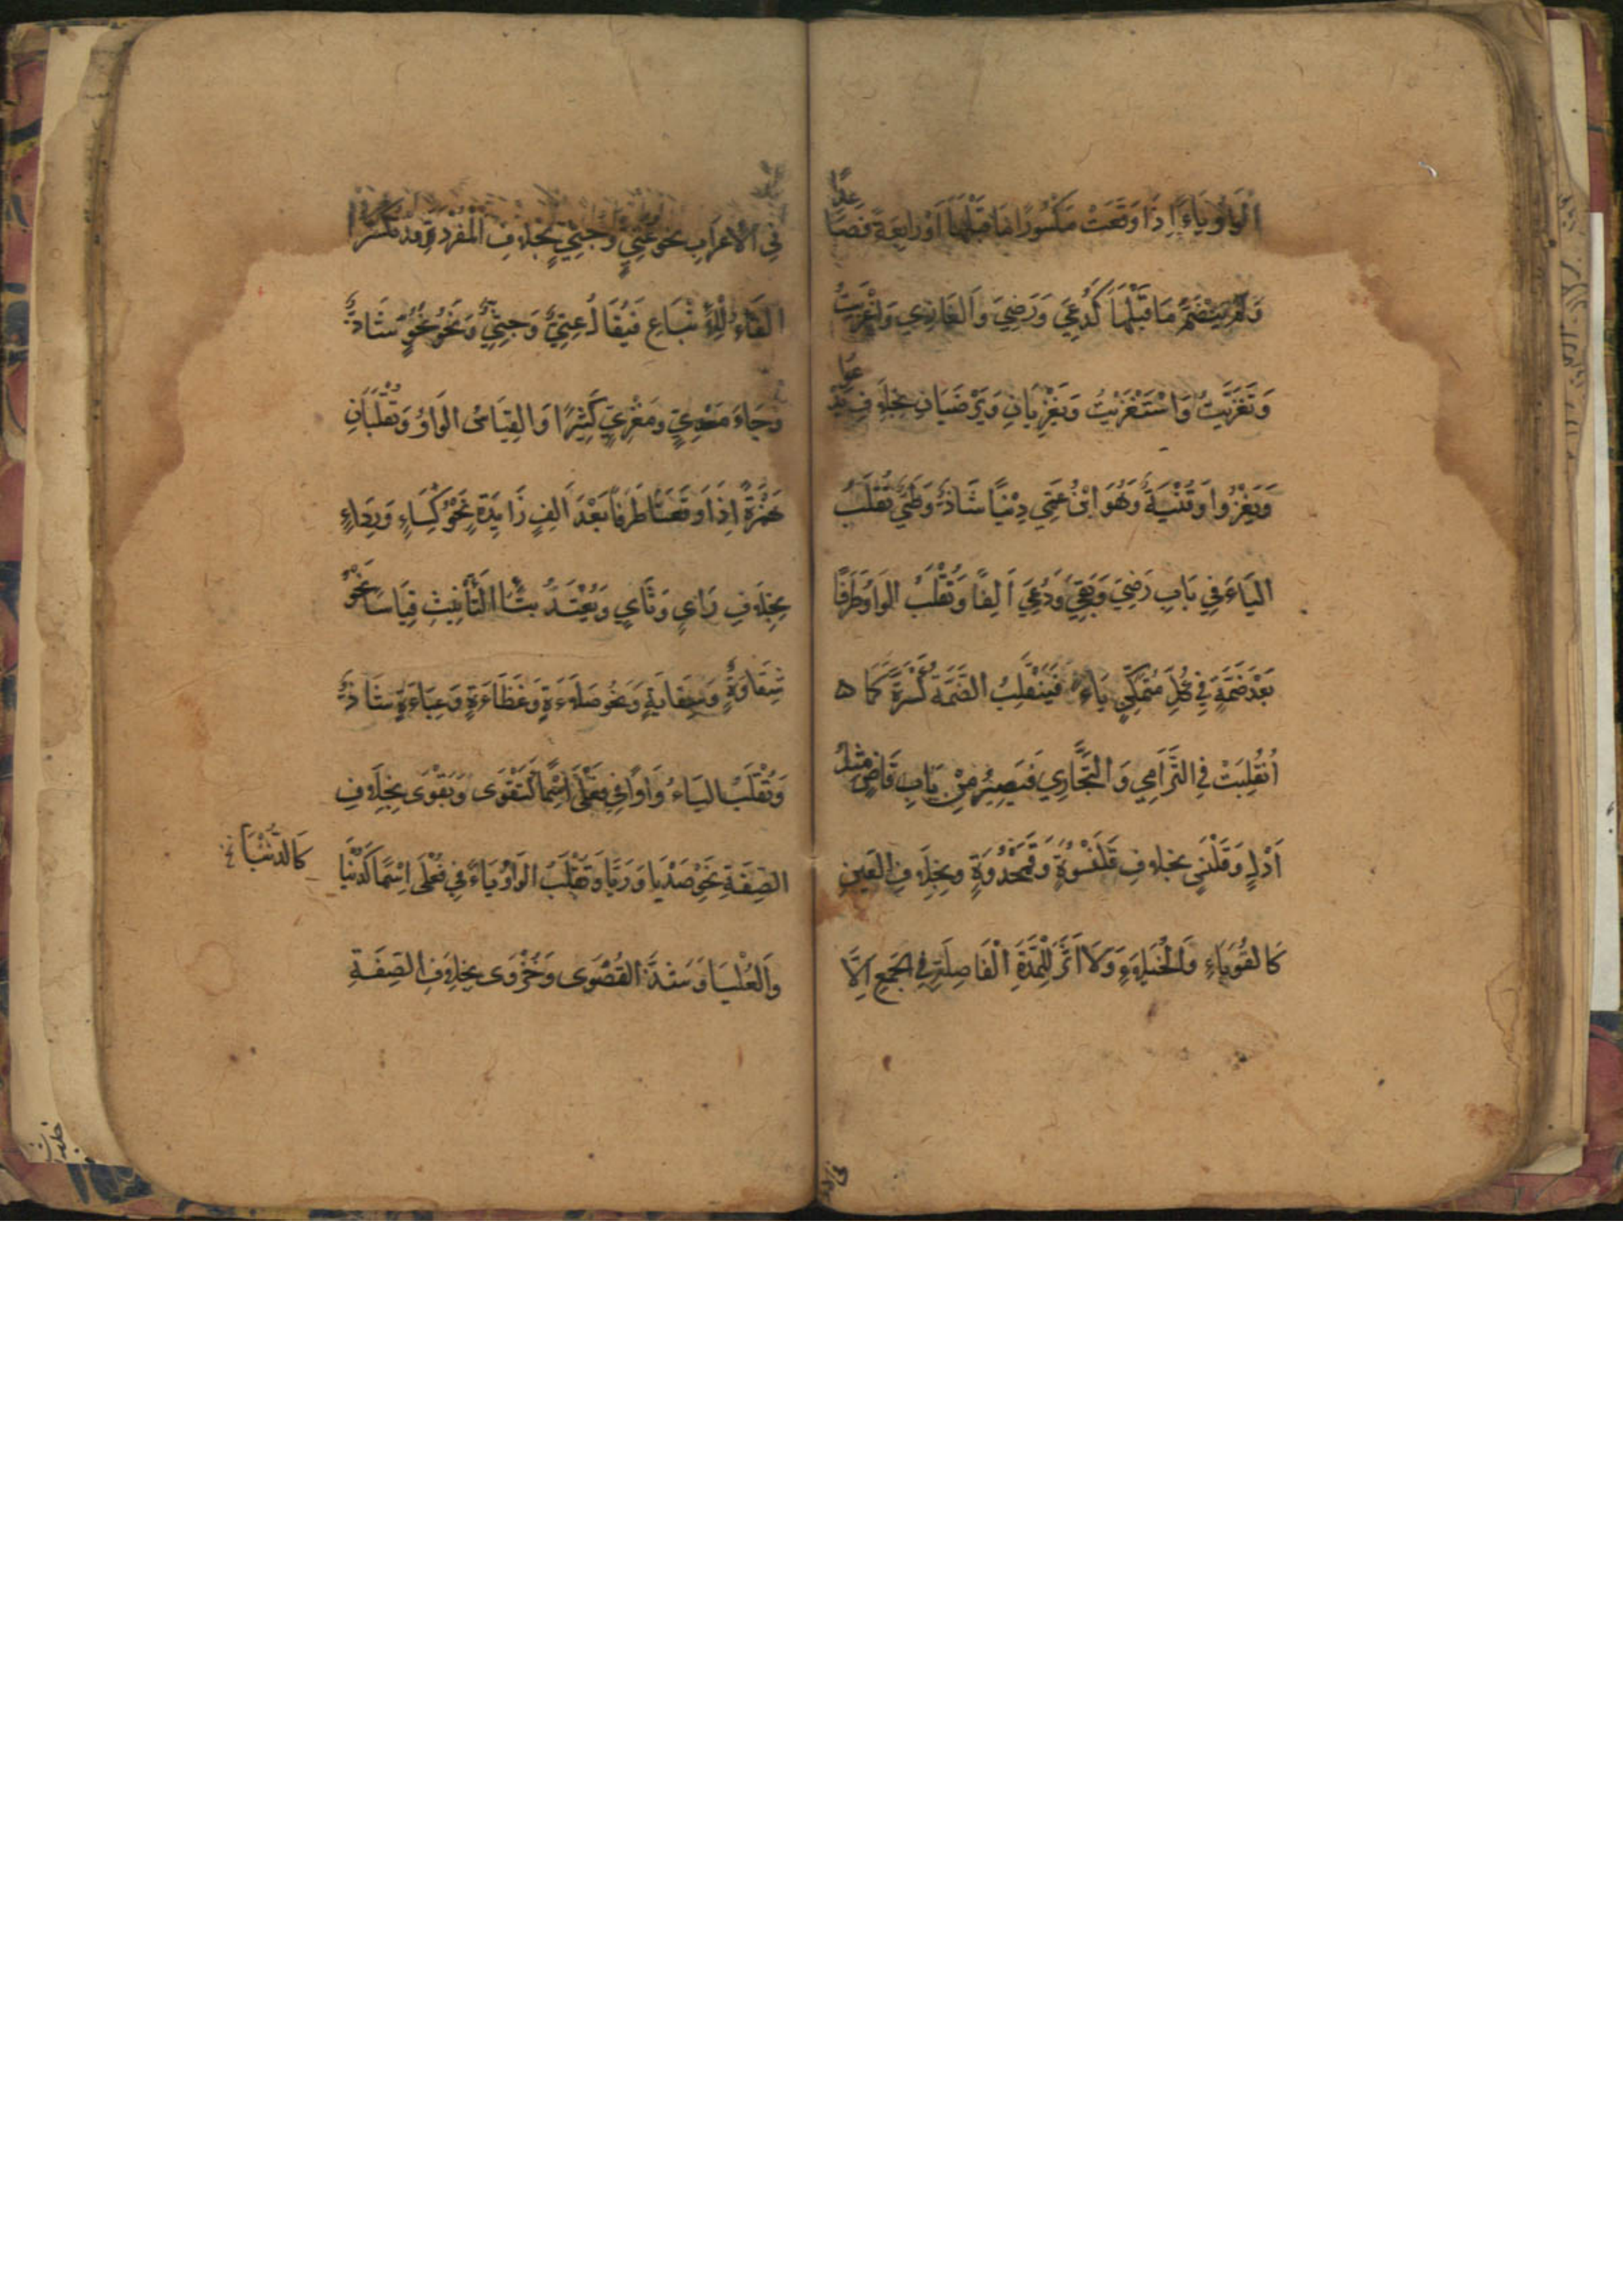 الْوَاوُ يَاءً إِذَا وَقَعَتْ مَكْسُورًا مَا قَبْلَهَا أَوْ رَابِعَةً فَصَاعِدًا
وَلَمْ يَنْضَمَّ مَا قَبْلَهَا كَدُعِيَ وَرَضِيَ وَالْغَازِي وَأَغْزَيْتُ
وَتَغَزَّيْتُ وَاسْتَغْزَيْتُ وَيُغْزَيَانِ وَيَرْضَيَانِ بِخِلَافِ يَدْعُوا
وَيَغْزُوا وَقِنْيَةٌ وَهُوَ ابْنُ عَمِّي دِنْيًا شَاذٌّ وَطَيِّئٌ تَقْلِبُ
الْيَاءَ فِي بَابِ رَضِيَ وَبَقِيَ وَدُعِيَ أَلِفًا وَتُقْلَبُ الْوَاوُ طَرَفًا
بَعْدَ ضَمَّةٍ فِي كُلِّ مُتَمَكِّنٍ يَاءً فَيَنْقَلِبُ الضَّمَّةُ كَسْرَةً كَمَا
انْقَلَبَتْ فِي التَّرَامِي وَالتَّجَارِي فَيَصِيرُ مِنْ بَابِ قَاضٍ مِثْلُ
أَدْلٍ وَقَلَنْسٍ بِخِلَافِ قَلَنْسُوَةٍ وَقَمَحْدُوَةٍ وَبِخِلَافِ الْعَيْنِ
كَالْقُوَبَاءِ وَالْخُيَلَاءِ وَلَا أَثَرَ لِلْمَدَّةِ الْفَاصِلَةِ فِي الْجَمْعِ إِلَّا
فِي الْإِعْرَابِ نَحْوُ عُتِيٍّ وَجُثِيٍّ بِخِلَافِ الْمُفْرَدِ وَقَدْ تُكْسَرُ
الْفَاءُ لِلْإِتْبَاعِ فَيُقَالُ عِتِيٌّ وَجِثِيٌّ وَنَحْوُ نُحُوٍّ شَاذٌّ
وَجَاءَ مَعْدِيٌّ وَمَغْزِيٌّ كَثِيرًا وَالْقِيَاسُ الْوَاوُ وَتُقْلَبَانِ
هَمْزَةً إِذَا وَقَعَتَا طَرَفًا بَعْدَ أَلِفٍ زَائِدَةٍ نَحْوُ كِسَاءٍ وَرِدَاءٍ
بِخِلَافِ رَايٍ وَثَايٍ وَيُعْتَدُّ بِتَاءِ التَّأْنِيثِ قِيَاسًا نَحْوُ
شَقَاوَةٍ وَسِقَايَةٍ وَنَحْوُ صَلَاءَةٍ وَعَظَاءَةٍ وَعَبَاءَةٍ شَاذٌّ
وَتُقْلَبُ الْيَاءُ وَاوًا فِي فَعْلَى اسْمًا كَتَقْوَى وَبَقْوَى بِخِلَافِ
الصِّفَةِ نَحْوُ صَدْيَا وَرَيَّا وَتُقْلَبُ الْوَاوُ يَاءً فِي فُعْلَى اسْمًا كَدُنْيَا
كَالدُّنْيَا خ
وَالْعُلْيَا وَشَذَّ الْقُصْوَى وَحُزْوَى بِخِلَافِ الصِّفَةِ